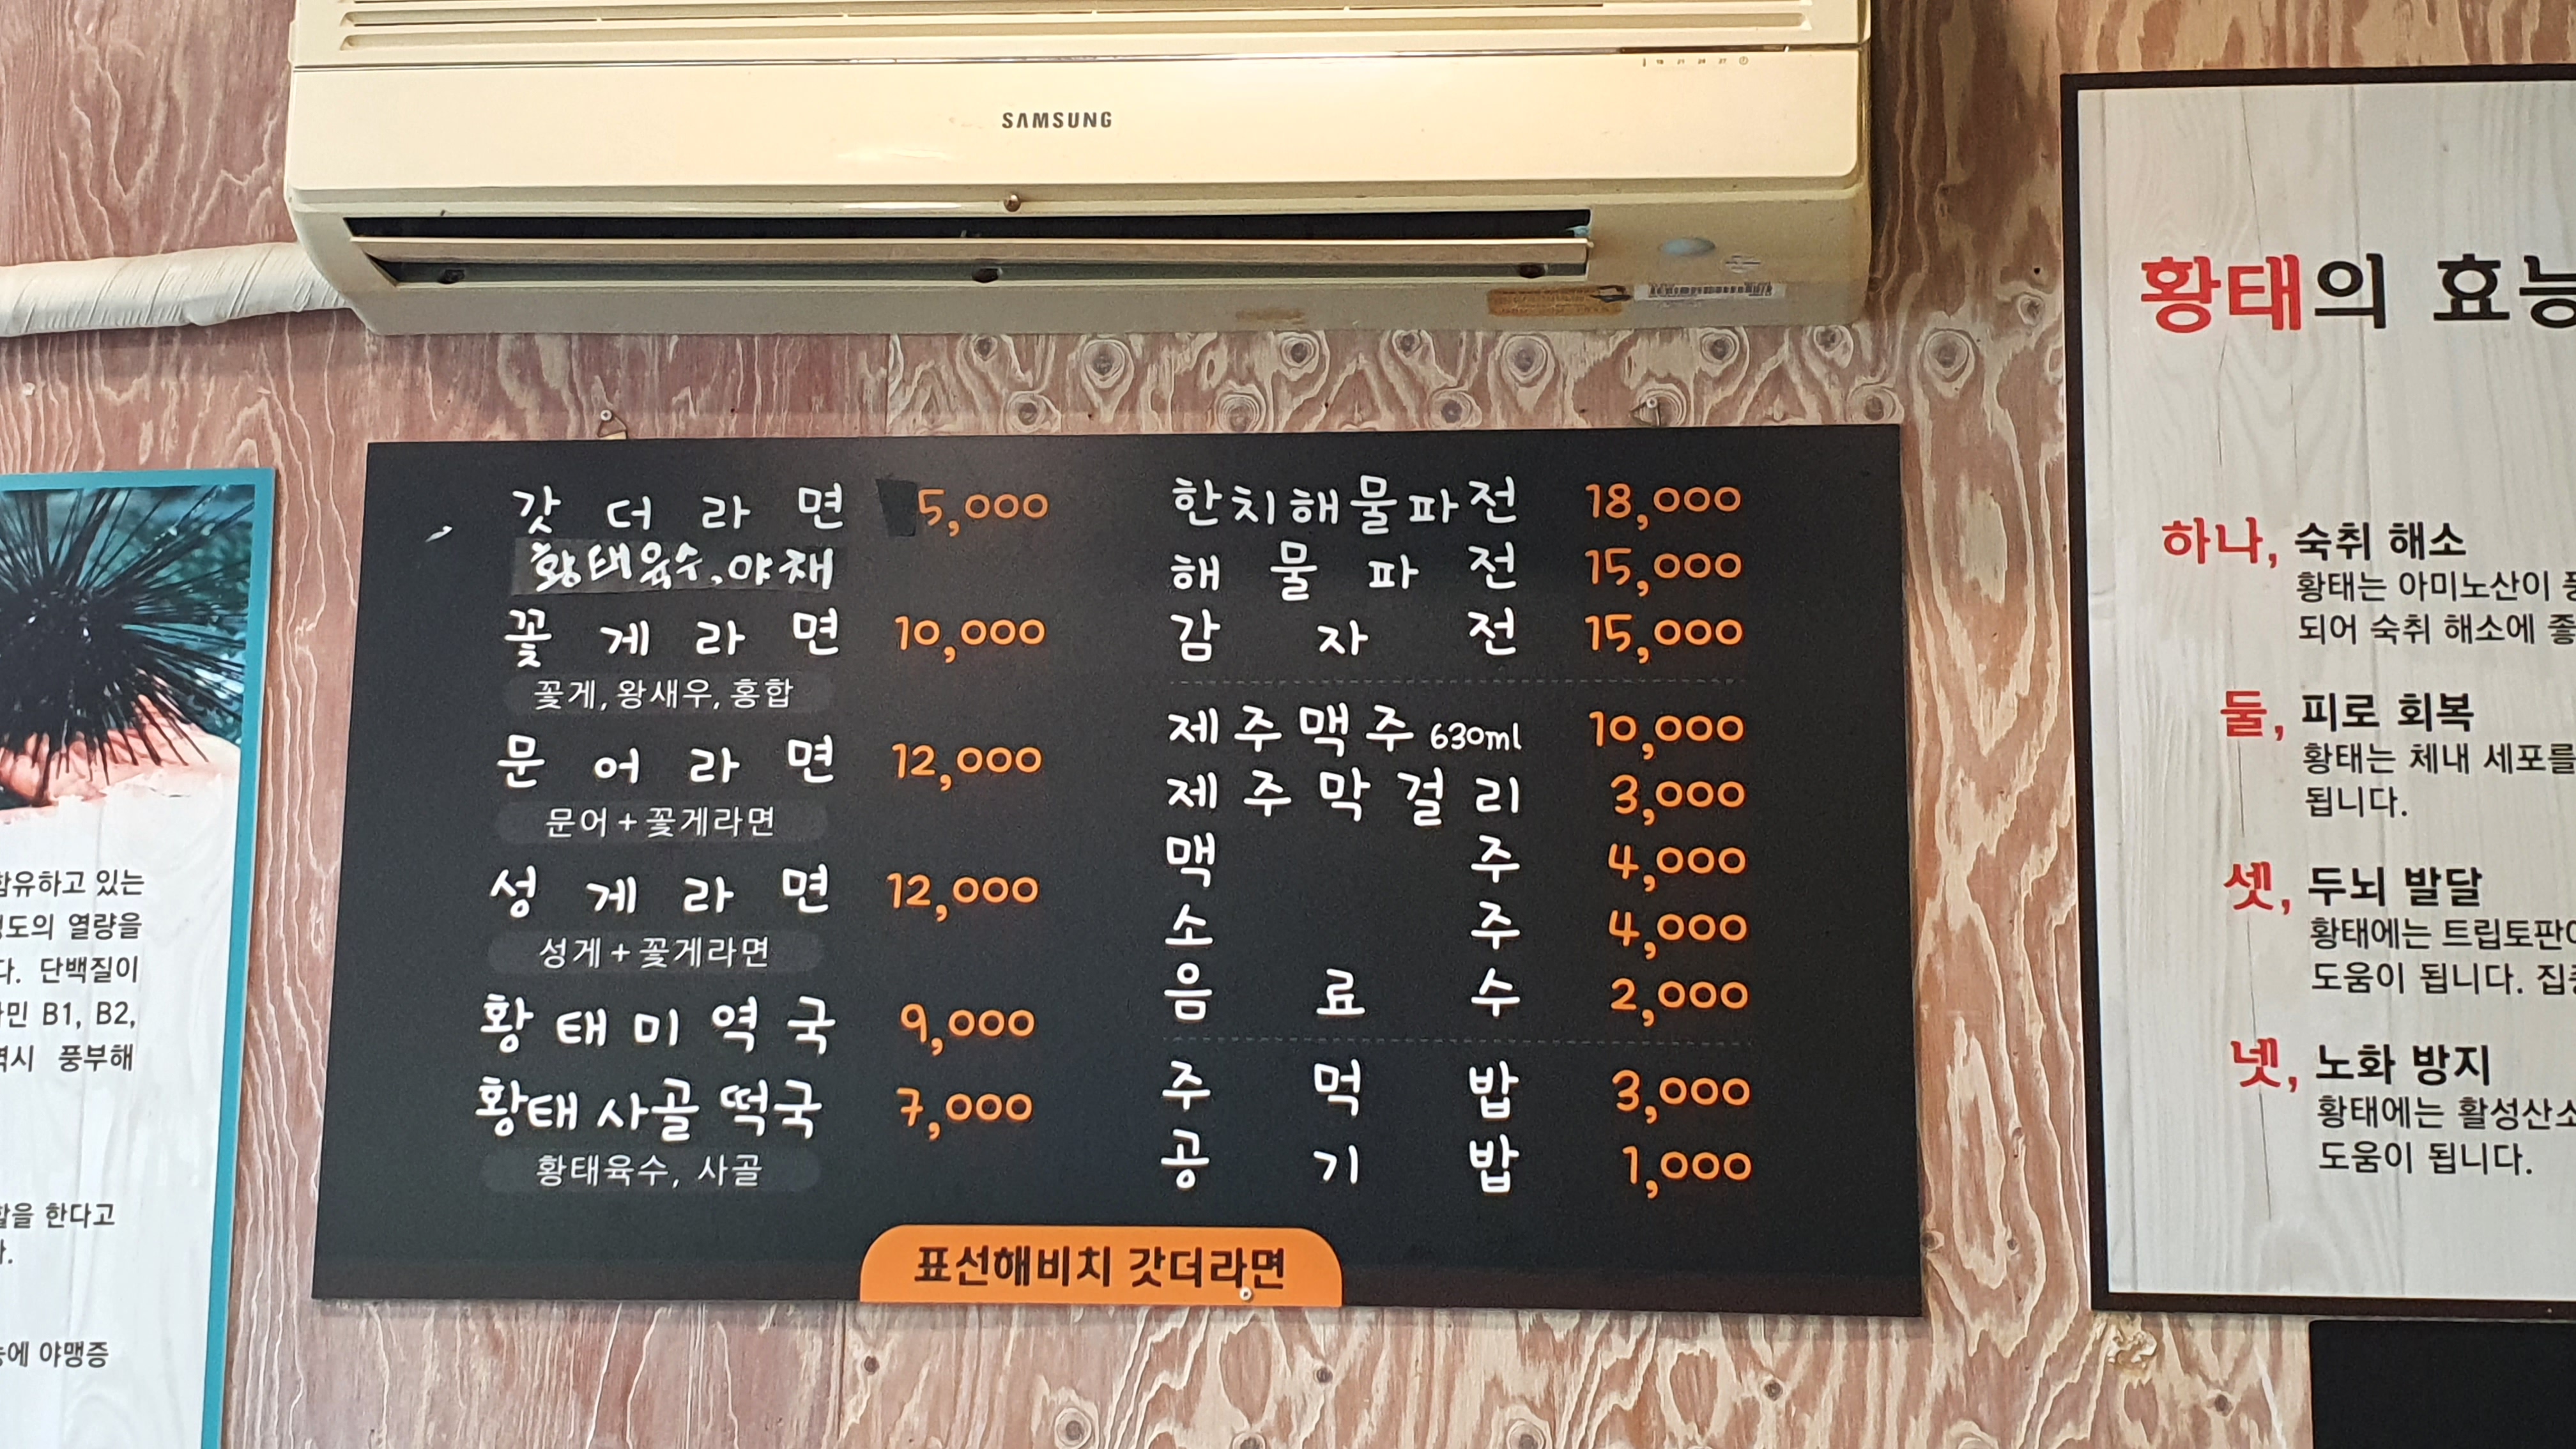 SAMSUNG
갓더라면 5,000
황태육수,야채
꽃게라면 10,000
꽃게,왕새우,홍합
문어라면 12,000
문어+꽃게라면
성게라면 12,000
성게+꽃게라면
황태미역국 9,000
황태사골떡국 7,000
황태육수, 사골
한치해물파전 18,000
해물파전 15,000
감자전 15,000
제주맥주 630ml 10,000
제주막걸리 3,000
맥주 4,000
소주 4,000
음료수 2,000
주먹밥 3,000
공기밥 1,000
표선해비치 갓더라면
함유하고 있는
정도의 열량을
다. 단백질이
B1, B2,
역시 풍부해
할을 한다고
다.
능에 야맹증
황태의 효능
하나, 숙취 해소
황태는 아미노산이
되어 숙취 해소에
둘, 피로 회복
황태는 체내 세포를
됩니다.
셋, 두뇌 발달
황태에는 트립토판이
도움이 됩니다.
넷, 노화 방지
황태에는 활성산소
도움이 됩니다.